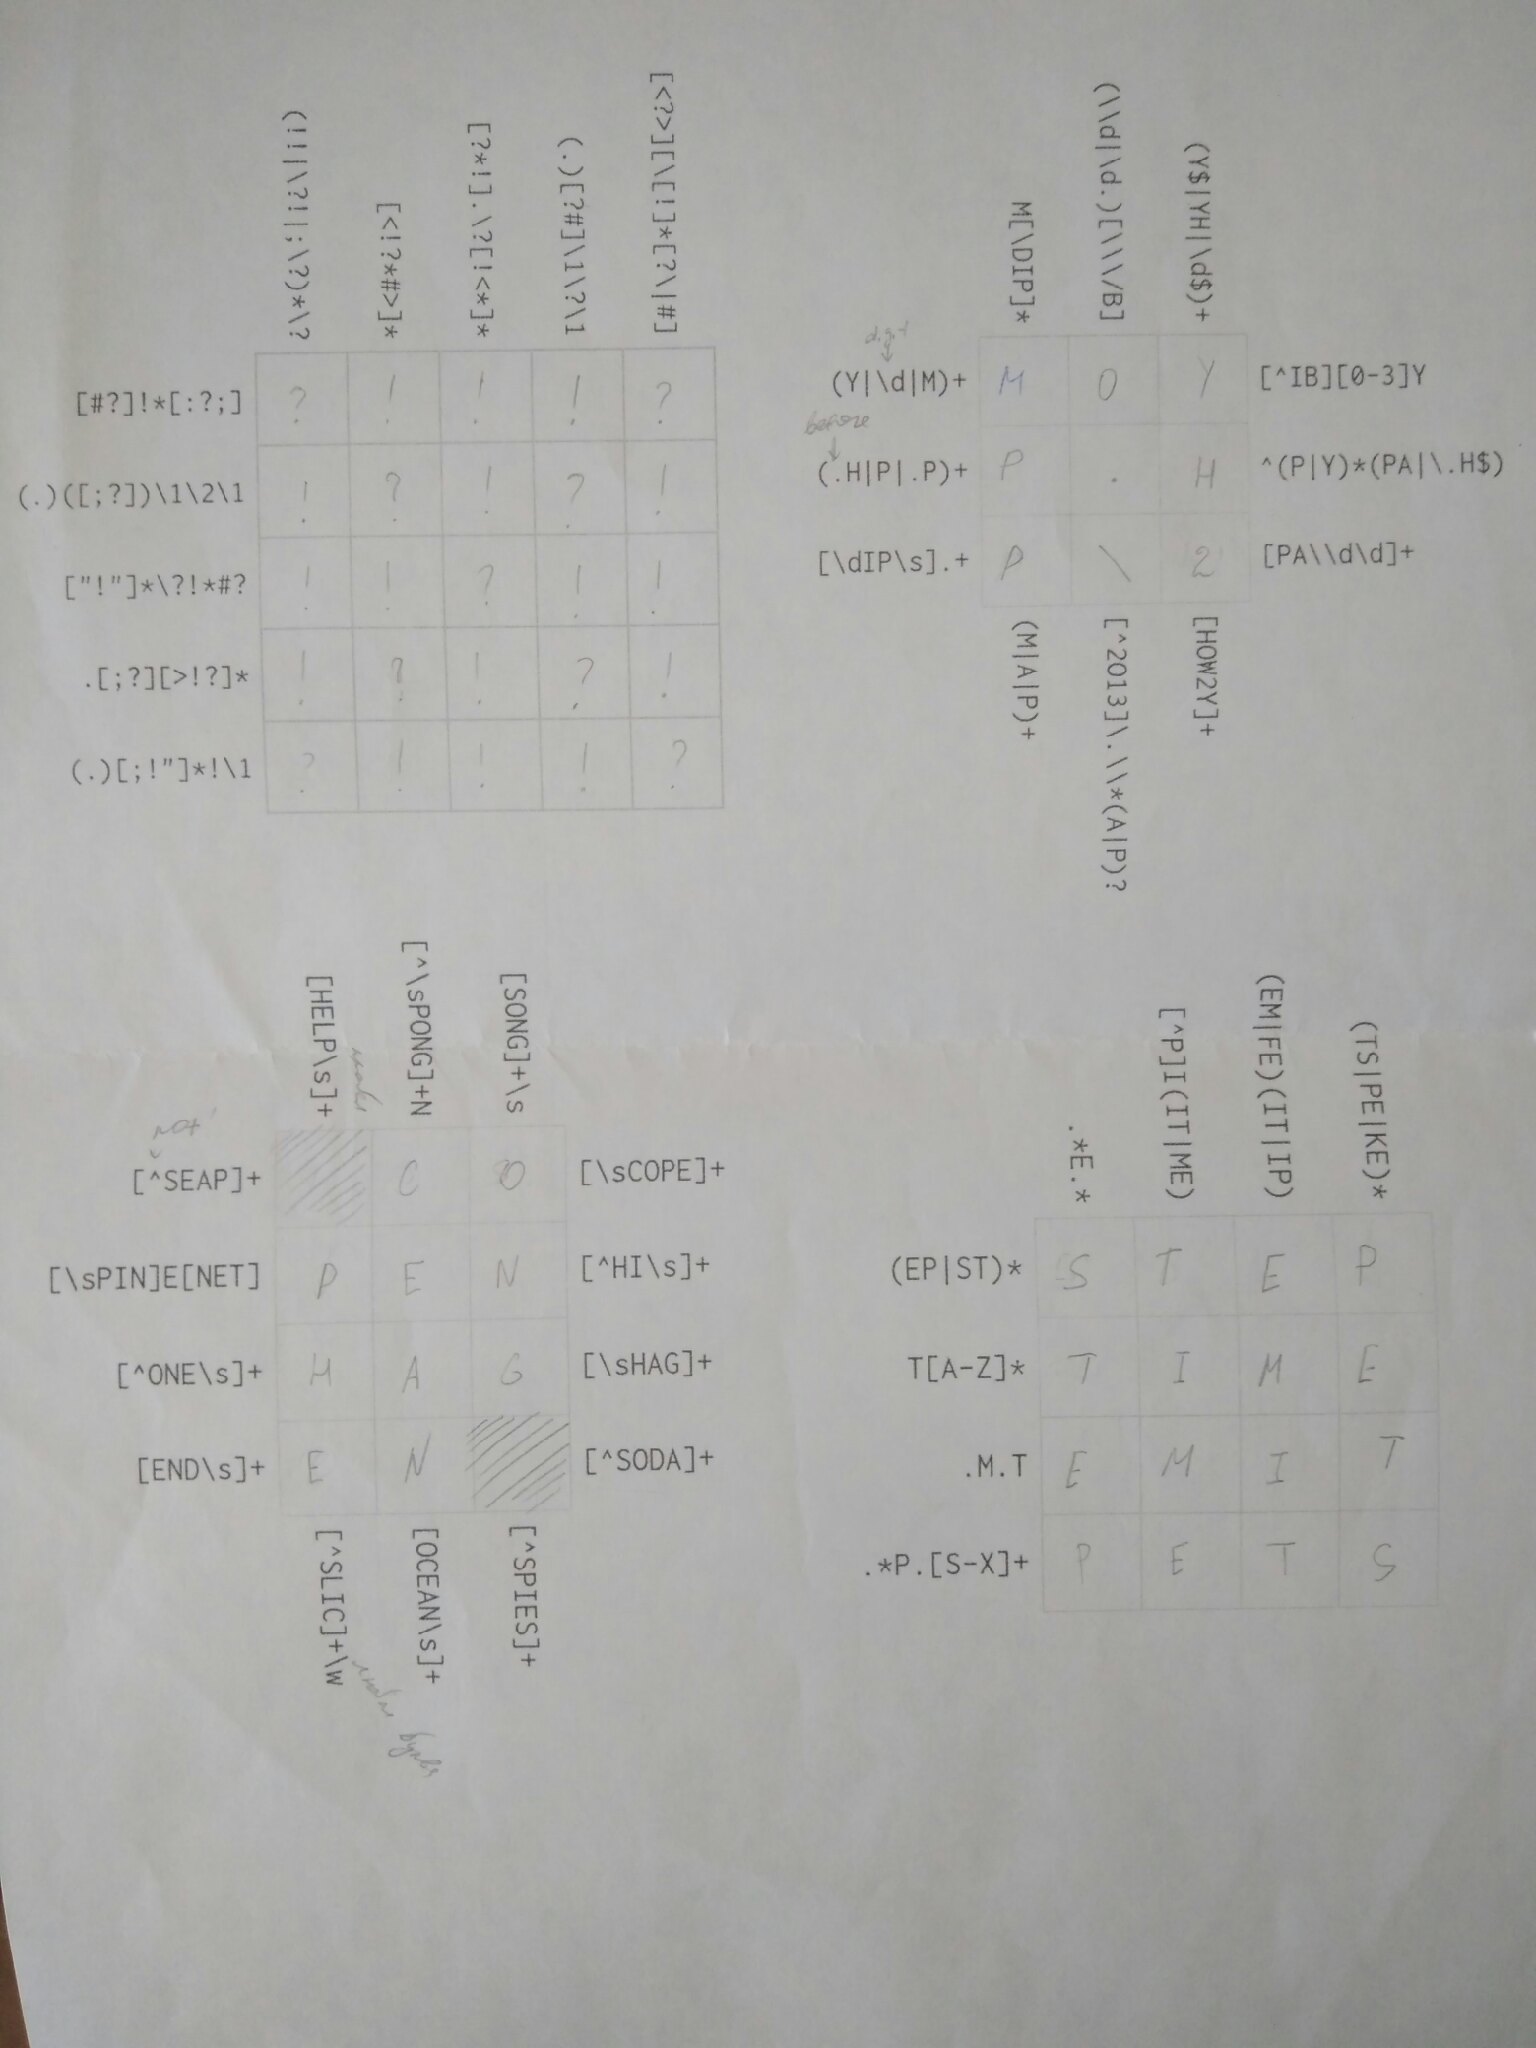 (!!|\?!|;\?)*\?
[<!?*#>]*
[?*!].\?[!<*]*
(.)[?#]\1\?\1
[<?>][\[!]*[?\|#]
[#?]!*[:?;] ? ! ! ! ?
(.)([;?])\1\2\1 ! ? ! ? !
["!"]*\?!*#? ! ! ? ! !
.[;?][>!?]* ! ? ! ? !
(.)[;!"]*!\1 ? ! ! ! ?
M[\DIP]*
(\\d|\d.)[\\\/B]
(Y$|YH|\d$)+
digit
(Y|\d|M)+ M O Y [^IB][0-3]Y
before
(.H|P|.P)+ P . H ^(P|Y)*(PA|\.H$)
[\dIP\s].+ P \ 2 [PA\\d\d]+
(M|A|P)+
[^2013]\.\\*(A|P)?
[HOW2Y]+
[HELP\s]+
[^\sPONG]+N
[SONG]+\s
not
[^SEAP]+ C O [\sCOPE]+
[\sPIN]E[NET] P E N [^HI\s]+
[^ONE\s]+ H A G [\sHAG]+
[END\s]+ E N [^SODA]+
[^SLIC]+\w
[OCEAN\s]+
[^SPIES]+
.*E.*
[^P]I(IT|ME)
(EM|FE)(IT|IP)
(TS|PE|KE)*
(EP|ST)* S T E P
T[A-Z]* T I M E
.M.T E M I T
.*P.[S-X]+ P E T S